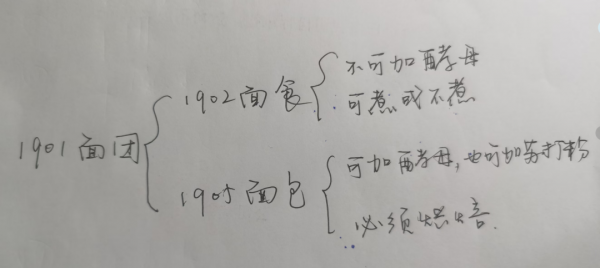 1901面团
1902面食
不可加酵母
可煮或不煮
1905面包
可加酵母,也可加苏打粉
必须烘焙